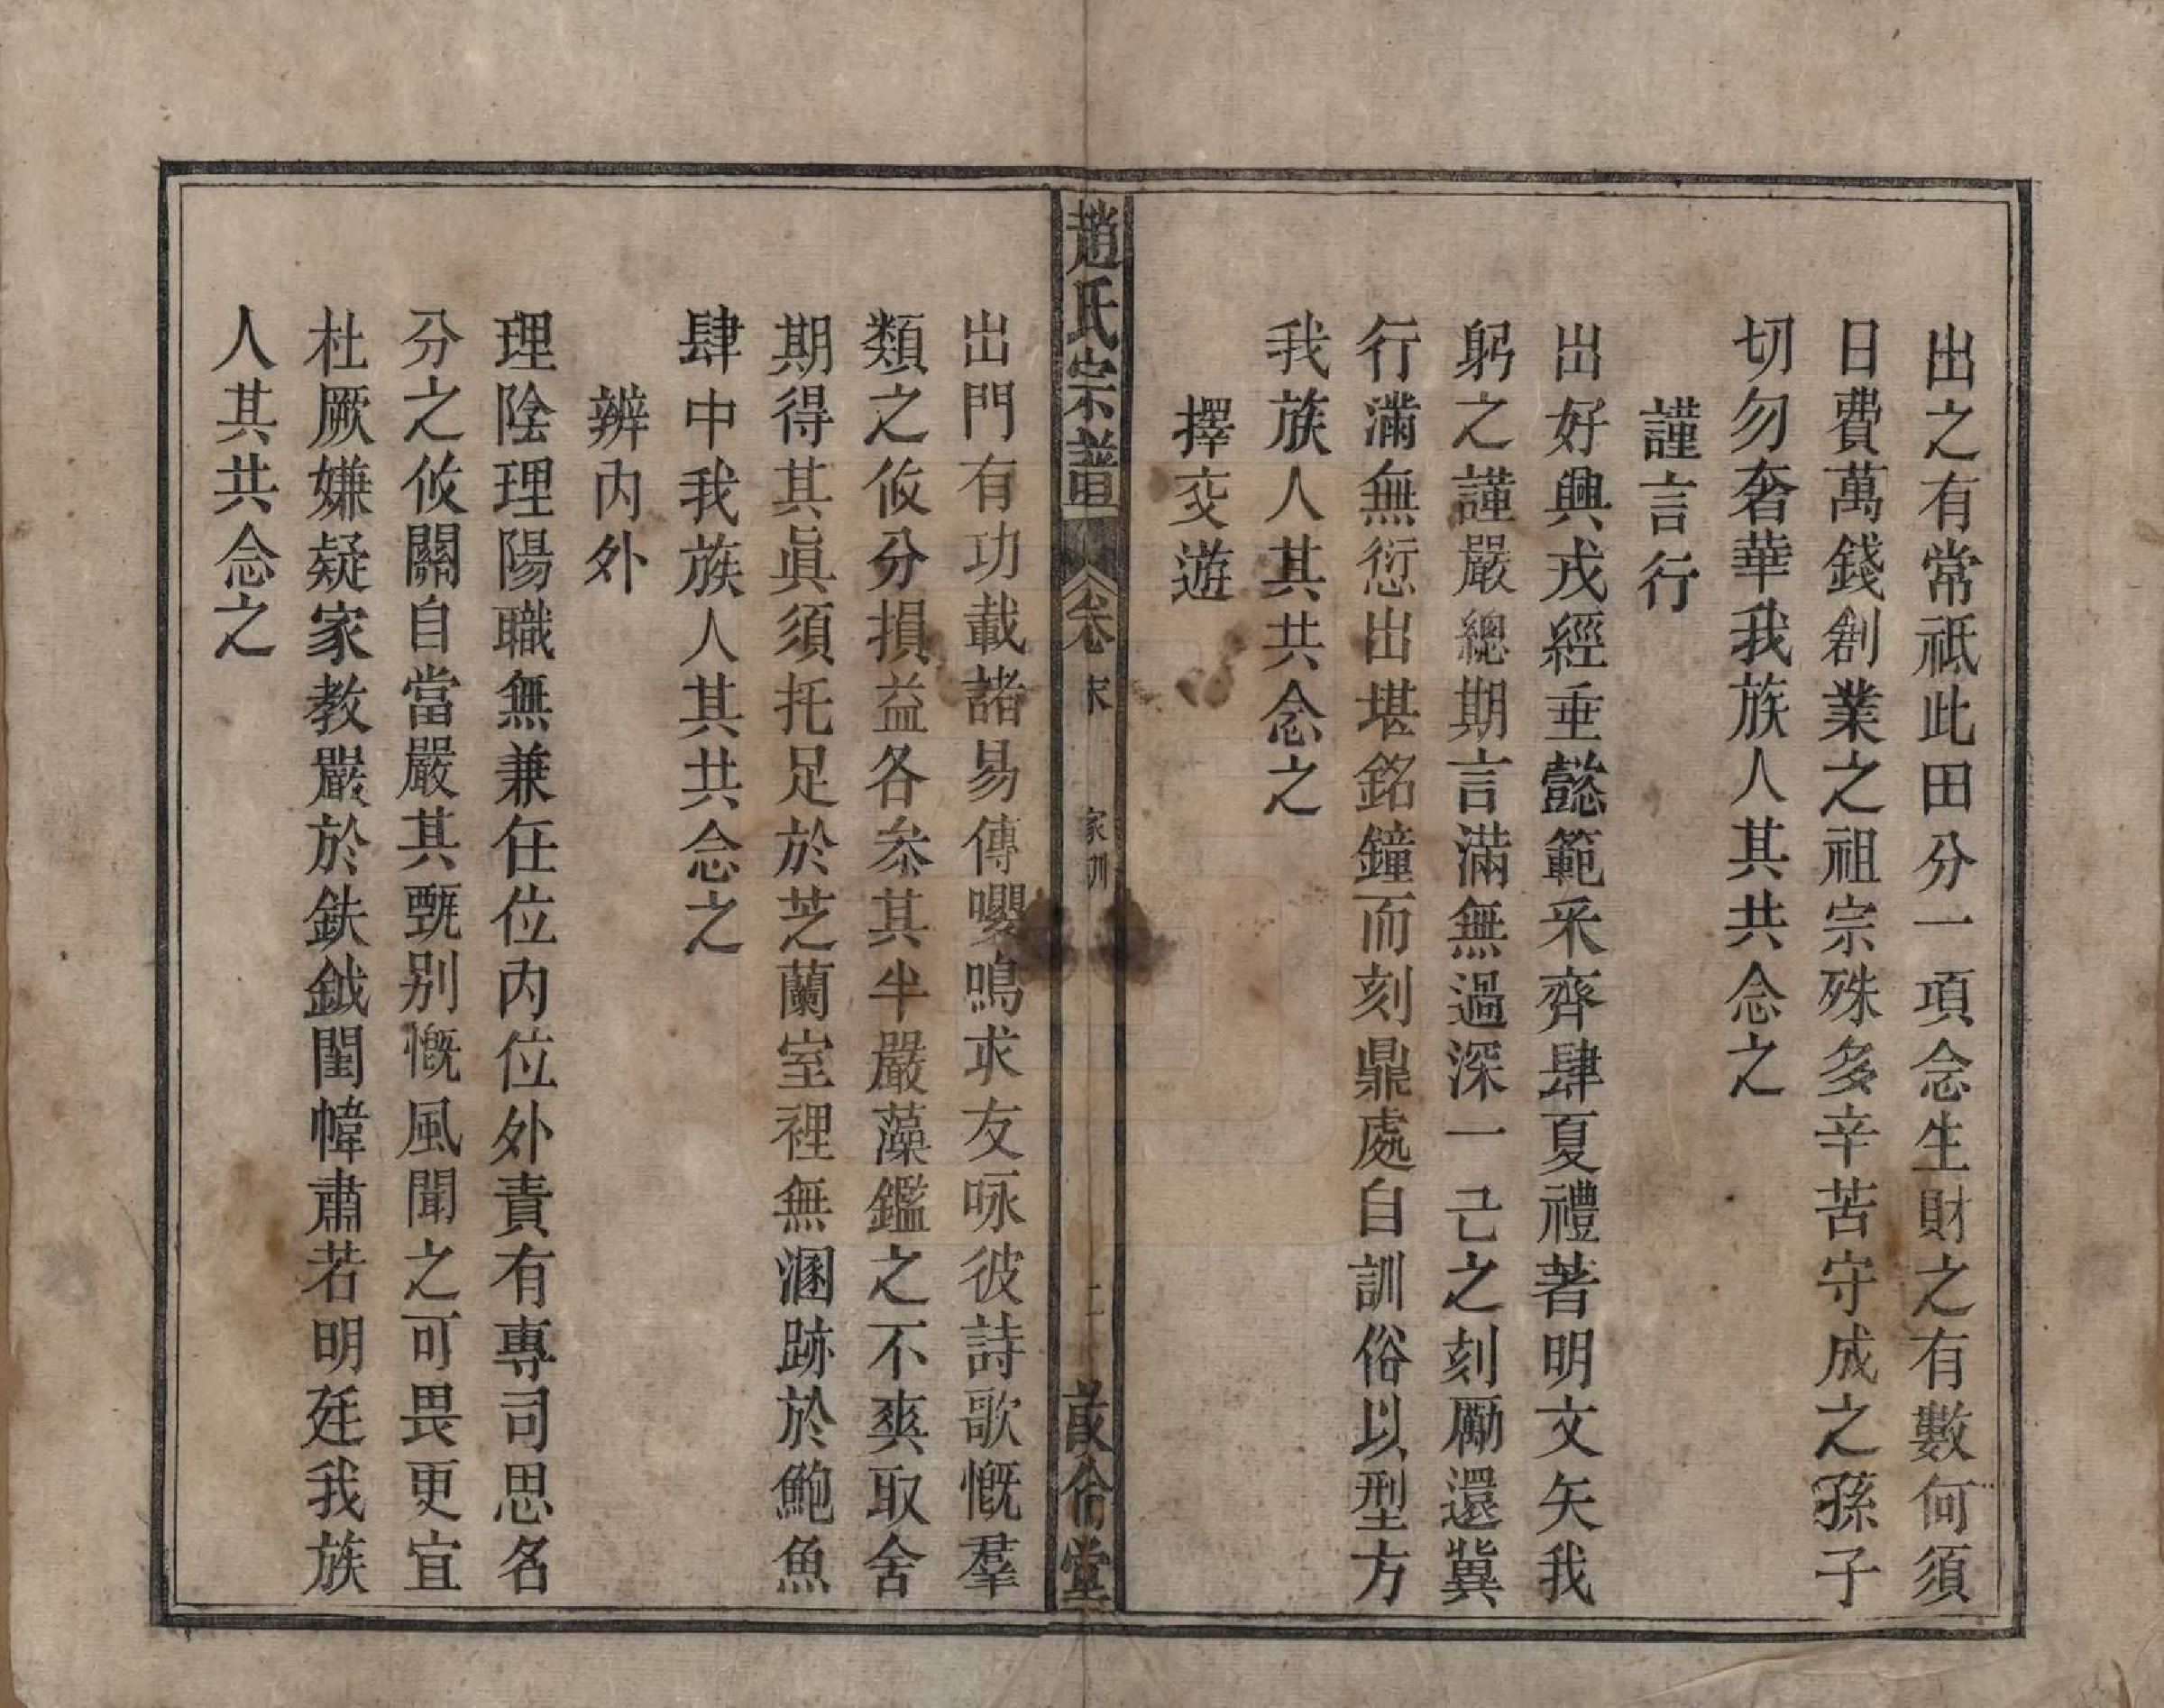 出之有常祗此田分一項念生財之有數何須
日費萬錢創業之祖宗殊多辛苦守成之孫子
切勿奢華我族人其共念之
謹言行
出好興戎經垂懿範采齊肆夏禮著明文矢我
躬之謹嚴總期言滿無過深一己之刻勵還冀
行滿無愆出堪銘鐘而刻鼎處自訓俗以型方
我族人其共念之
擇交遊
趙氏宗譜
卷末
家訓
二
敘倫堂
出門有功載諸易傳嚶鳴求友咏彼詩歌慨羣
類之攸分損益各叅其半嚴藻鑑之不爽取舍
期得其眞須托足於芝蘭室裡無溷跡於鮑魚
肆中我族人其共念之
辨內外
理陰理陽職無兼任位內位外責有專司思名
分之攸關自當嚴其甄別慨風聞之可畏更宜
杜厥嫌疑家教嚴於鈇鉞閨幃肅若明廷我族
人其共念之